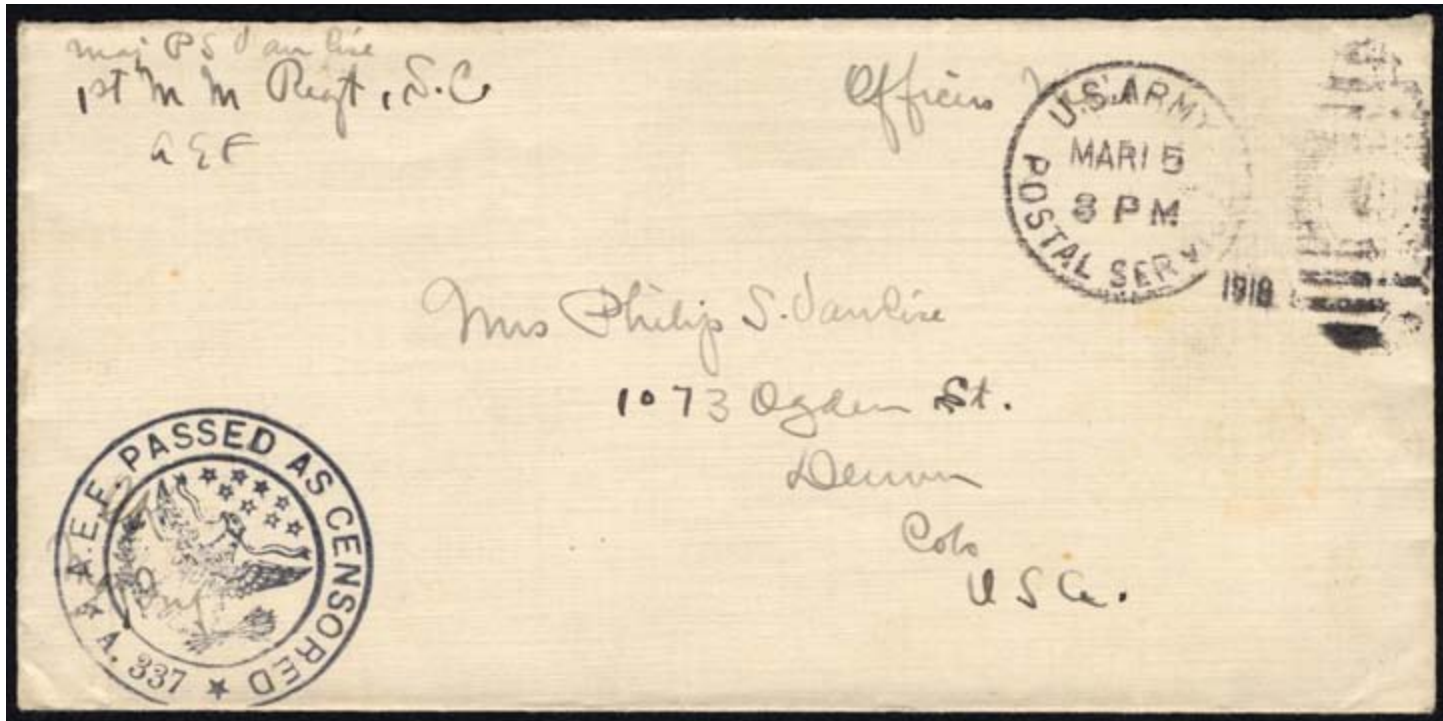 Maj P S Van Cise
1st M M Regt, S.C
A E F
Officers
U.S. ARMY
MAR 15
3 PM
POSTAL SERVICE
1918
Mrs Philip S. Van Cise
1073 Ogden St.
Denver
Colo
U S A.
A.E.F. PASSED AS CENSORED
A. 337